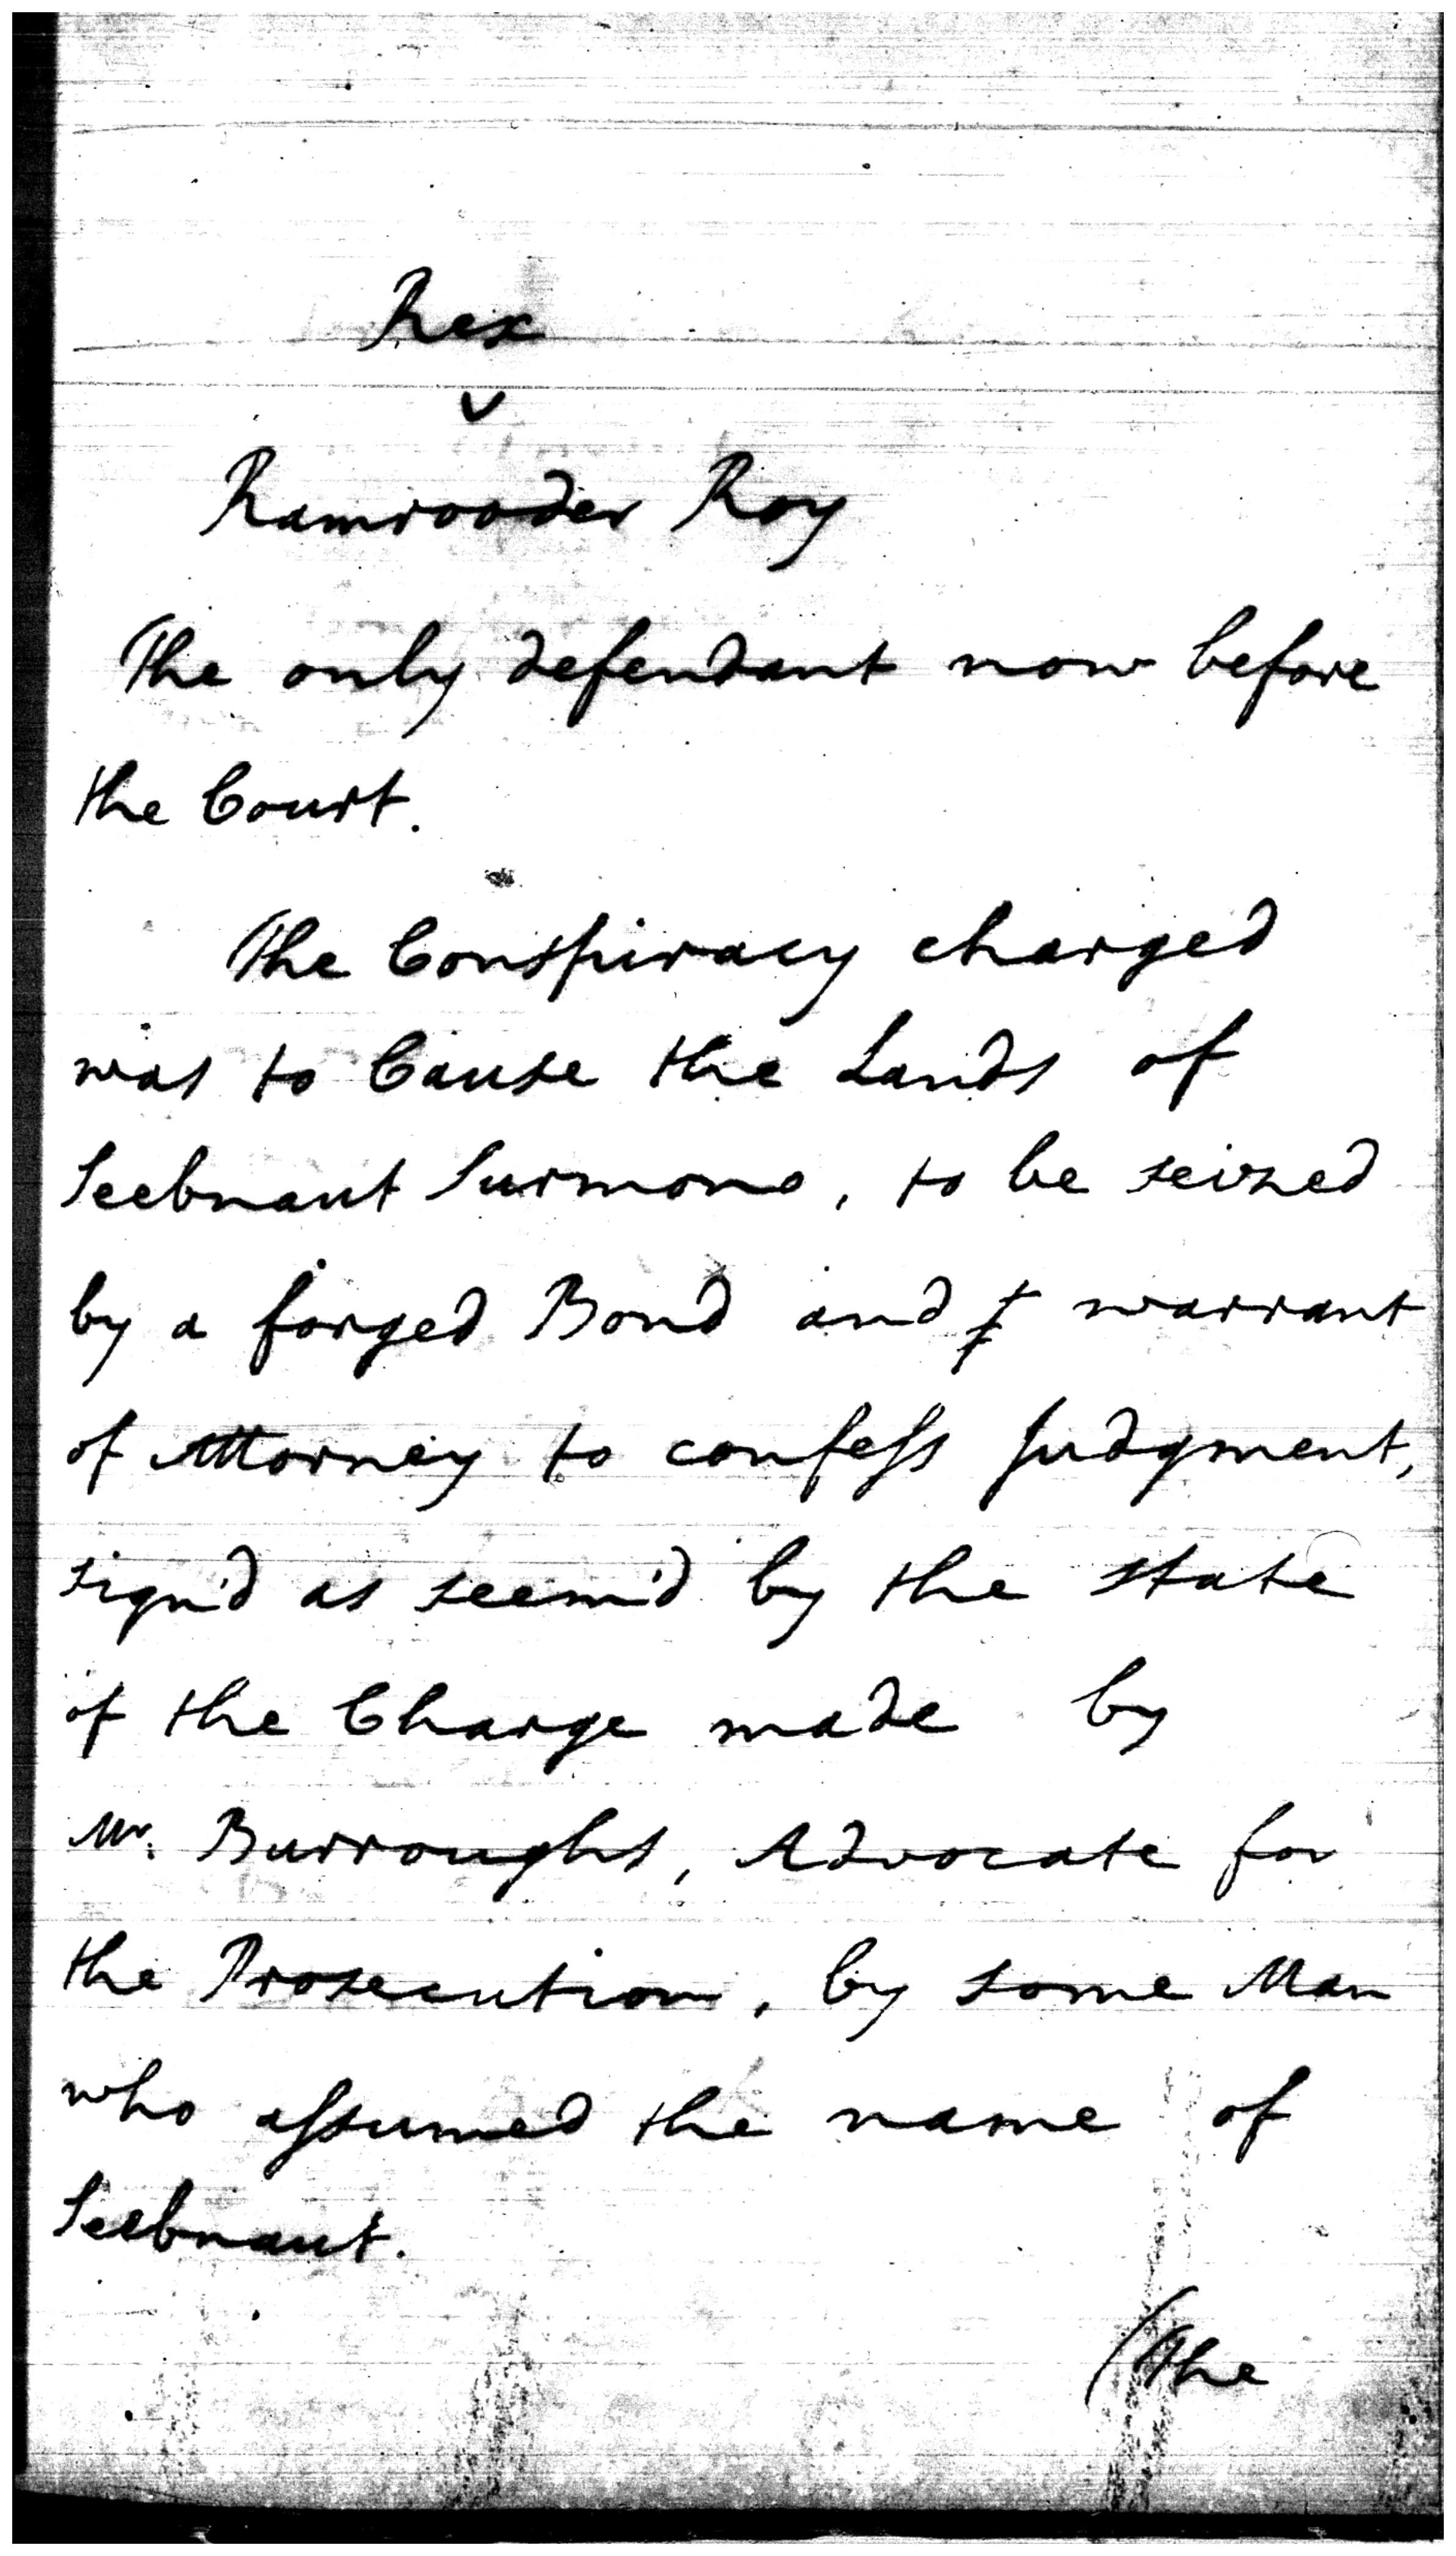 Rex
v
Ramrooder Roy
The only defendant now before
the Court.
The Conspiracy charged
was to Cause the Lands of
Seebnaut Surmono, to be seized
by a forged Bond and warrant
of Attorney to confess Judgment,
sign'd as seem'd by the state
of the Charge made by
Mr. Burroughs, Advocate for
the Prosecution, by some Man
who assumed the name of
Seebnaut.
(The